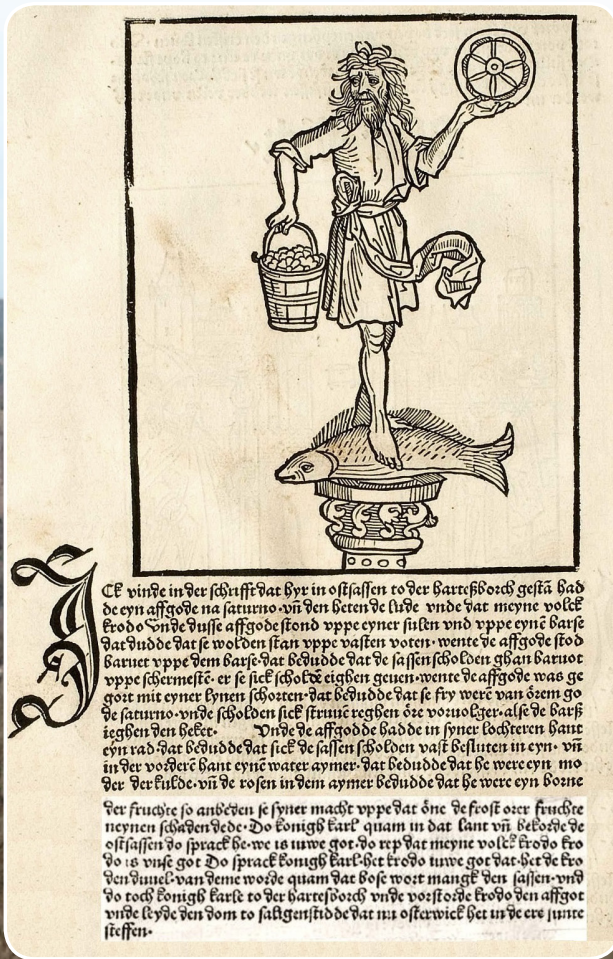 JCk vinde in der schrifft dat hyr in ostsassen to der harteßborch gestā had
de eyn affgode na saturno·vn̄ den heten de lude vnde dat meyne volck
krodo Vnde dusse affgode stond vppe eyner sulen vnd vppe eynē barse
dat dudde dat se wolden stan vppe vasten voten·wente de affgode stod
baruet vppe dem barse·dat bedudde dat de sassen scholden ghan baruot
vppe schermestē·er se sick scholdē eighen geuen·wente de affgode was ge
gort mit eyner lynen schorten·dat bedudde dat se fry werē van örem go
de saturno·vnde scholden sick struuē reghen öre voruolger·alse de barß
ieghen den heket· Vnde de affgodde hadde in syner lochteren hant
eyn rad·dat bedudde dat sick de sassen scholden vast besluten in eyn·vn̄
in der vorderē hant eynē water aymer·dat bedudde dat he were eyn mo
der der kulde·vn̄ de rosen in dem aymer bedudde dat he were eyn borne
der fruchte so anbeden se syner macht vppe dat öne de frost orer fruchte
neynen schaden dede·Do konigh karl quam in dat lant vn̄ bekorde de
ostsassen do sprack he·we is iuwe got·do rep dat meyne volck krodo kro
do is vnse got Do sprack konigh karl·het krodo iuwe got dat·het de kro
den duuel·van deme worde quam dat bose wort mangk den sassen·vnd
do toch konigh karle to der hartesborch vnde vorstorde krodo den affgot
vnde leyde den dom to saligenstidde dat nu osterwick het in de ere sunte
steffen·